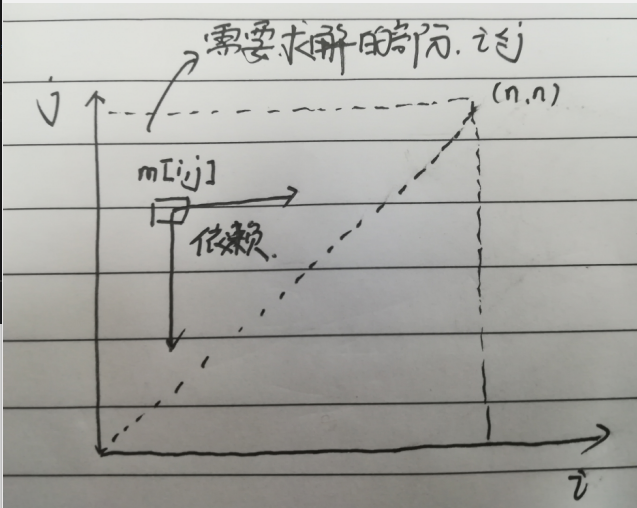 需要求解的部分. i≤j
j
(n,n)
m[i,j]
依赖.
i